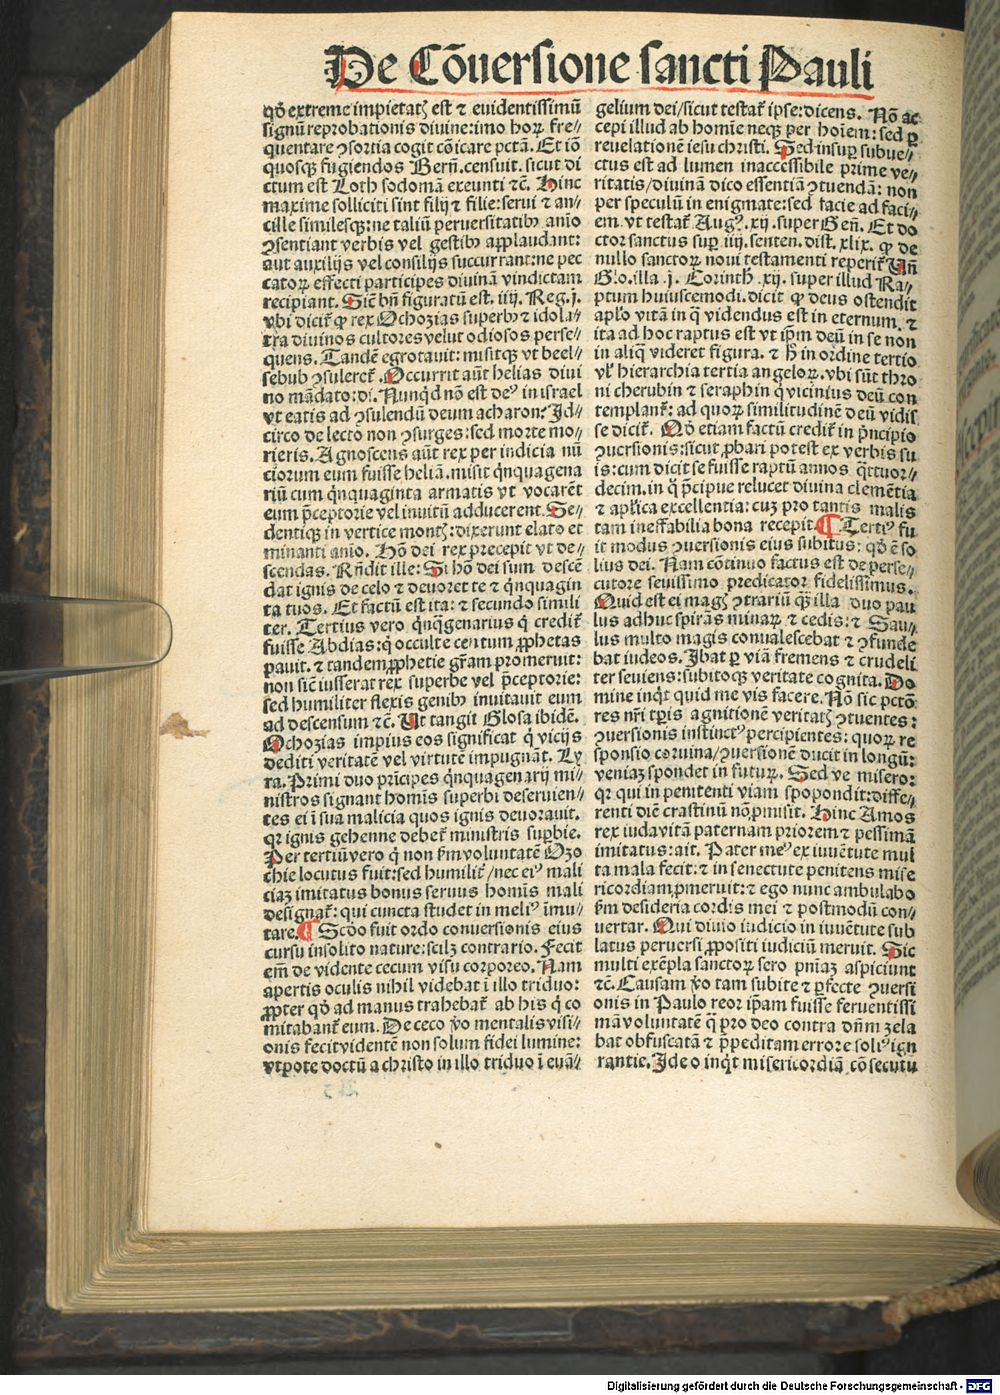 De Cōuersione sancti Pauli
qḋ extreme impietatꝭ est ⁊ euidentissimū
signū reprobationis diuine: imo hoꝝ fre//
quentare ꝯsortia cogit cōicare pctā. Et iō
quosqꝫ fugiendos Bern̄. censuit. sicut di
ctum est Loth sodomā exeunti ⁊c̄. Hinc
maxime solliciti sint filij ⁊ filie: serui ⁊ an//
cille similesqꝫ: ne taliū peruersitatibꝰ aīo
ꝯsentiant verbis vel gestibꝰ applaudant:
aut auxilijs vel consilijs succurrant: ne pec
catoꝝ effecti participes diuinā vindictam
recipiant. Sic̄ bn̄ figuratū est. iiij. Reg. j.
vbi dicit̄ ꝙ rex Ochozias superbꝰ ⁊ idola//
tra diuinos cultores velut odiosos perse//
quens. Tandē egrotauit: misitqꝫ vt beel//
sebub ꝯsuleret̄. Occurrit aūt helias diui
no mādato: di. Nunqd̄ nō est deꝰ in israel
vt eatis ad ꝯsulendū deum acharon? Id//
circo de lecto non ꝯsurges: sed morte mo//
rieris. Agnoscens aūt rex per indicia nū
ciorum eum fuisse heliā. misit q̇nquagena
riū cum q̇nquaginta armatis vt vocarēt
eum p̄ceptorie vel inuitū adducerent. Se//
dentiqꝫ in vertice montꝭ: dixerunt elato et
minanti aīo. Hō dei rex precepit vt de//
scendas. Rn̄dit ille: Si hō dei sum descē
dat ignis de celo ⁊ deuoret te ⁊ q̇nquagin
ta tuos. Et factū est ita: ⁊ secundo simili
ter. Tertius vero q̇nq̄genarius q̇ credit̄
fuisse Abdias: q̇ occulte centum ꝓphetas
pauit. ⁊ tandem ꝓphetie gr̄am promeruit:
non sic̄ iusserat rex superbe vel p̄ceptorie:
sed humiliter flexis genibꝰ inuitauit eum
ad descensum ⁊c̄. Ut tangit Glosa ibidē.
Ochozias impius eos significat q̇ vicijs
dediti veritatē vel virtutē impugnāt. Ly
ra. Primi duo prīcipes q̇nquagenarij mi//
nistros signant homīs superbi deseruien//
tes ei ī sua malicia quos ignis deuorauit.
qꝛ ignis gehenne debet̄ ministris supbie.
Per tertiū vero q̇ non ẜm voluntatē Ozo
chie locutus fuit: sed humilit̄/ nec eiꝰ mali
ciaꝫ imitatus bonus seruus homīs mali
designat̄: qui cuncta studet in meliꝰ īmu//
tare. ¶ Scḋo fuit ordo conuersionis eius
cursu insolito nature: scilꝫ contrario. Fecit
em̄ de vidente cecum visu corporeo. Nam
apertis oculis nihil videbat ī illo triduo:
ꝓpter qḋ ad manus trahebat̄ ab his q̇ co
mitabant̄ eum. De ceco ṽo mentalis visi//
onis fecit videntē non solum fidei lumine:
vtpote doctū a christo in illo triduo ī euā//
gelium dei/ sicut testat̄ ipse: dicens. Nō ac
cepi illud ab homīe neqꝫ per hoīem: sed ꝑ
reuelationē iesu christi. Sed insuꝑ subue//
ctus est ad lumen inaccessibile prime ve//
ritatis/ diuinā dico essentiā ꝯtuendā: non
per speculū in enigmate: sed facie ad faci//
em vt testat̄ Augꝰ. xij. super Gen̄. Et do
ctor sanctus suꝑ iiij. senten. dist. xlix. ꝙ de
nullo sanctoꝝ noui testamenti reperit̄ Un̄
Glo. illa .j. Corinth. xij. super illud Ra//
ptum huiuscemodi. dicit ꝙ deus ostendit
apl̄o vitā in q̄ videndus est in eternum. ⁊
ita ad hoc raptus est vt ip̄m deū in se non
in aliq̄ videret figura. ⁊ ħ in ordine tertio
vl̓ hierarchia tertia angeloꝝ. vbi sūt thro
ni cherubin ⁊ seraphin q̇ vicinius deū con
templant̄: ad quoꝝ similitudinē deū vidis
se dicit̄. Qḋ etiam factū credit̄ in p̄ncipio
ꝯuersionis: sicut ꝓbari potest ex verbis su
is: cum dicit se fuisse raptū annos q̄ttuor//
decim. in q̇ p̄cipue relucet diuina clemētia
⁊ apl̄ica excellentia: cuꝫ pro tantis malis
tam ineffabilia bona recepit. ¶ Tertiꝰ fu
it modus ꝯuersionis eius subitus: qḋ ē so
lius dei. Nam cōtinuo factus est de perse//
cutore seuissimo predicator fidelissimus.
Quid est ei magꝭ ꝯtrariū q̄ꝫ illa duo pau
lus adhuc spirās minaꝝ ⁊ cedis: ⁊ Sau//
lus multo magis conualescebat ⁊ ꝯfunde
bat iudeos. Ibat ꝑ viā fremens ⁊ crudeli
ter seuiens: subitoqꝫ veritate cognita. Do
mine inqt̄ quid me vis facere. Nō sic pctō
res nr̄i tp̄ris agnitionē veritatꝭ ꝯtuentes:
ꝯuersionis instinctꝰ percipientes: quoꝝ re
sponsio coruina/ ꝯuersionē ducit in longū:
veniaꝫ spondet in futuꝝ. Sed ve misero:
qꝛ qui in penitenti viam spopondit: diffe//
renti diē crastinū nō ꝓmisit. Hinc Amos
rex iudauitā paternam priorem ⁊ pessimā
imitatus: ait. Pater meꝰ ex iuuētute mul
ta mala fecit: ⁊ in senectute penitens mise
ricordiam ꝓmeruit: ⁊ ego nunc ambulabo
ẜm desideria cordis mei ⁊ postmodū con//
uertar. Qui diuīo iudicio in iuuētute sub
latus peruersi ꝓpositi iudiciū meruit. Sic
multi exēpla sanctoꝝ sero pn̄iaꝫ aspiciunt
⁊c̄. Causam ṽo tam subite ⁊ ꝑfecte ꝯuersi
onis in Paulo reor ip̄am fuisse feruentissi
mā voluntatē q̄ pro deo contra dn̄m zela
bat obfuscatā ⁊ p̄peditam errore soliꝰ ign
rantie. Ideo inqt̄ misericordiā cōsecutu
Digitalisierung gefördert durch die Deutsche Forschungsgemeinschaft - DFG